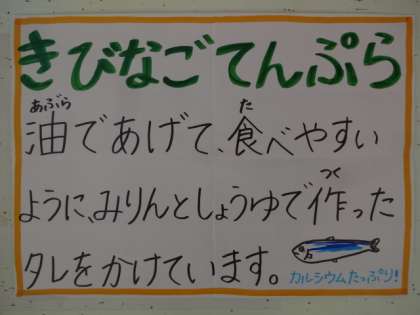 きびなごてんぷら
油であげて、食べやすい
ように、みりんとしょうゆで作った
タレをかけています。
カルシウムたっぷり!